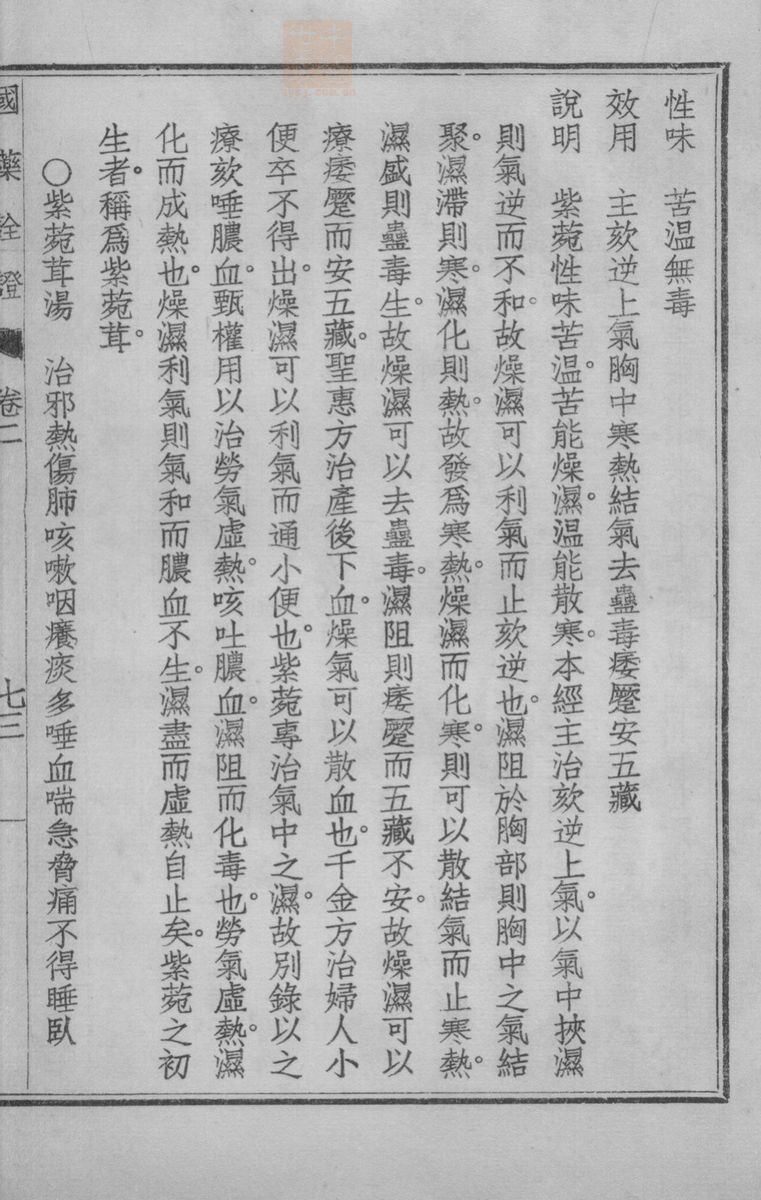 性味　苦温無毒
效用　主欬逆上氣胸中寒熱結氣去蠱毒痿躄安五藏
說明　紫菀性味苦温。苦能燥濕。温能散寒。本經主治欬逆上氣。以氣中挾濕
則氣逆而不和。故燥濕可以利氣而止欬逆也。濕阻於胸部則胸中之氣結
聚。濕滯則寒。濕化則熱。故發爲寒熱。燥濕而化寒。則可以散結氣而止寒熱。
濕盛則蠱毒生。故燥濕可以去蠱毒。濕阻則痿躄而五藏不安。故燥濕可以
療痿躄而安五藏。聖惠方治產後下血。燥氣可以散血也。千金方治婦人小
便卒不得出。燥濕可以利氣而通小便也。紫菀專治氣中之濕。故別錄以之
療欬唾膿血。甄權用以治勞氣虛熱。咳吐膿血。濕阻而化毒也。勞氣虛熱。濕
化而成熱也。燥濕利氣則氣和而膿血不生。濕盡而虛熱自止矣。紫菀之初
生者。稱爲紫菀茸。
○紫菀茸湯　治邪熱傷肺咳嗽咽癢痰多唾血喘急脅痛不得睡臥
國藥詮證　卷二　七三